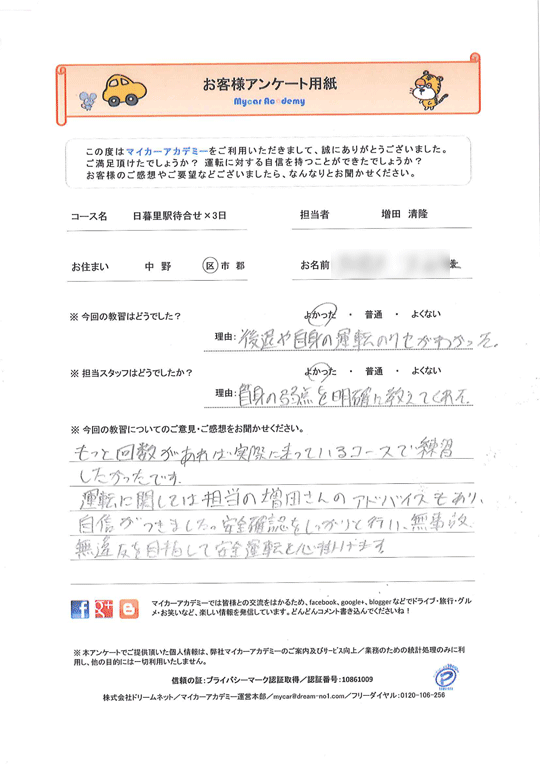 お客様アンケート用紙
Mycar Academy
この度はマイカーアカデミーをご利用いただきまして、誠にありがとうございました。
ご満足頂けたでしょうか？ 運転に対する自信を持つことができたでしょうか？
お客様のご感想やご要望などございましたら、なんなりとお聞かせください。
コース名 日暮里駅待合せ×3日 担当者 増田 清隆
お住まい 中野 区 市 郡 お名前 様
※ 今回の教習はどうでした？ よかった ・ 普通 ・ よくない
理由: 後退や自身の運転のクセがわかった。
※ 担当スタッフはどうでしたか？ よかった ・ 普通 ・ よくない
理由: 自身の弱点を明確に教えてくれた。
※ 今回の教習についてのご意見・ご感想をお聞かせください。
もっと回数があれば実際に走っているコースで練習
したかったです。
運転に関しては担当の増田さんのアドバイスもあり、
自信がつきました。安全確認をしっかりと行い、無事故
無違反を目指して安全運転を心掛けます。
マイカーアカデミーでは皆様との交流をはかるため、facebook、google+、bloggerなどでドライブ・旅行・グル
メ・お笑いなど、楽しい情報を発信しています。どんどんコメント書き込んでくださいね！
※ 本アンケートでご提供頂いた個人情報は、弊社マイカーアカデミーのご案内及びサービス向上／業務のための統計処理のみに利
用し、他の目的には一切利用いたしません。
信頼の証：プライバシーマーク認証取得／認証番号：10861009
株式会社ドリームネット／マイカーアカデミー運営本部／mycar@dream-no1.com／フリーダイヤル：0120-106-256